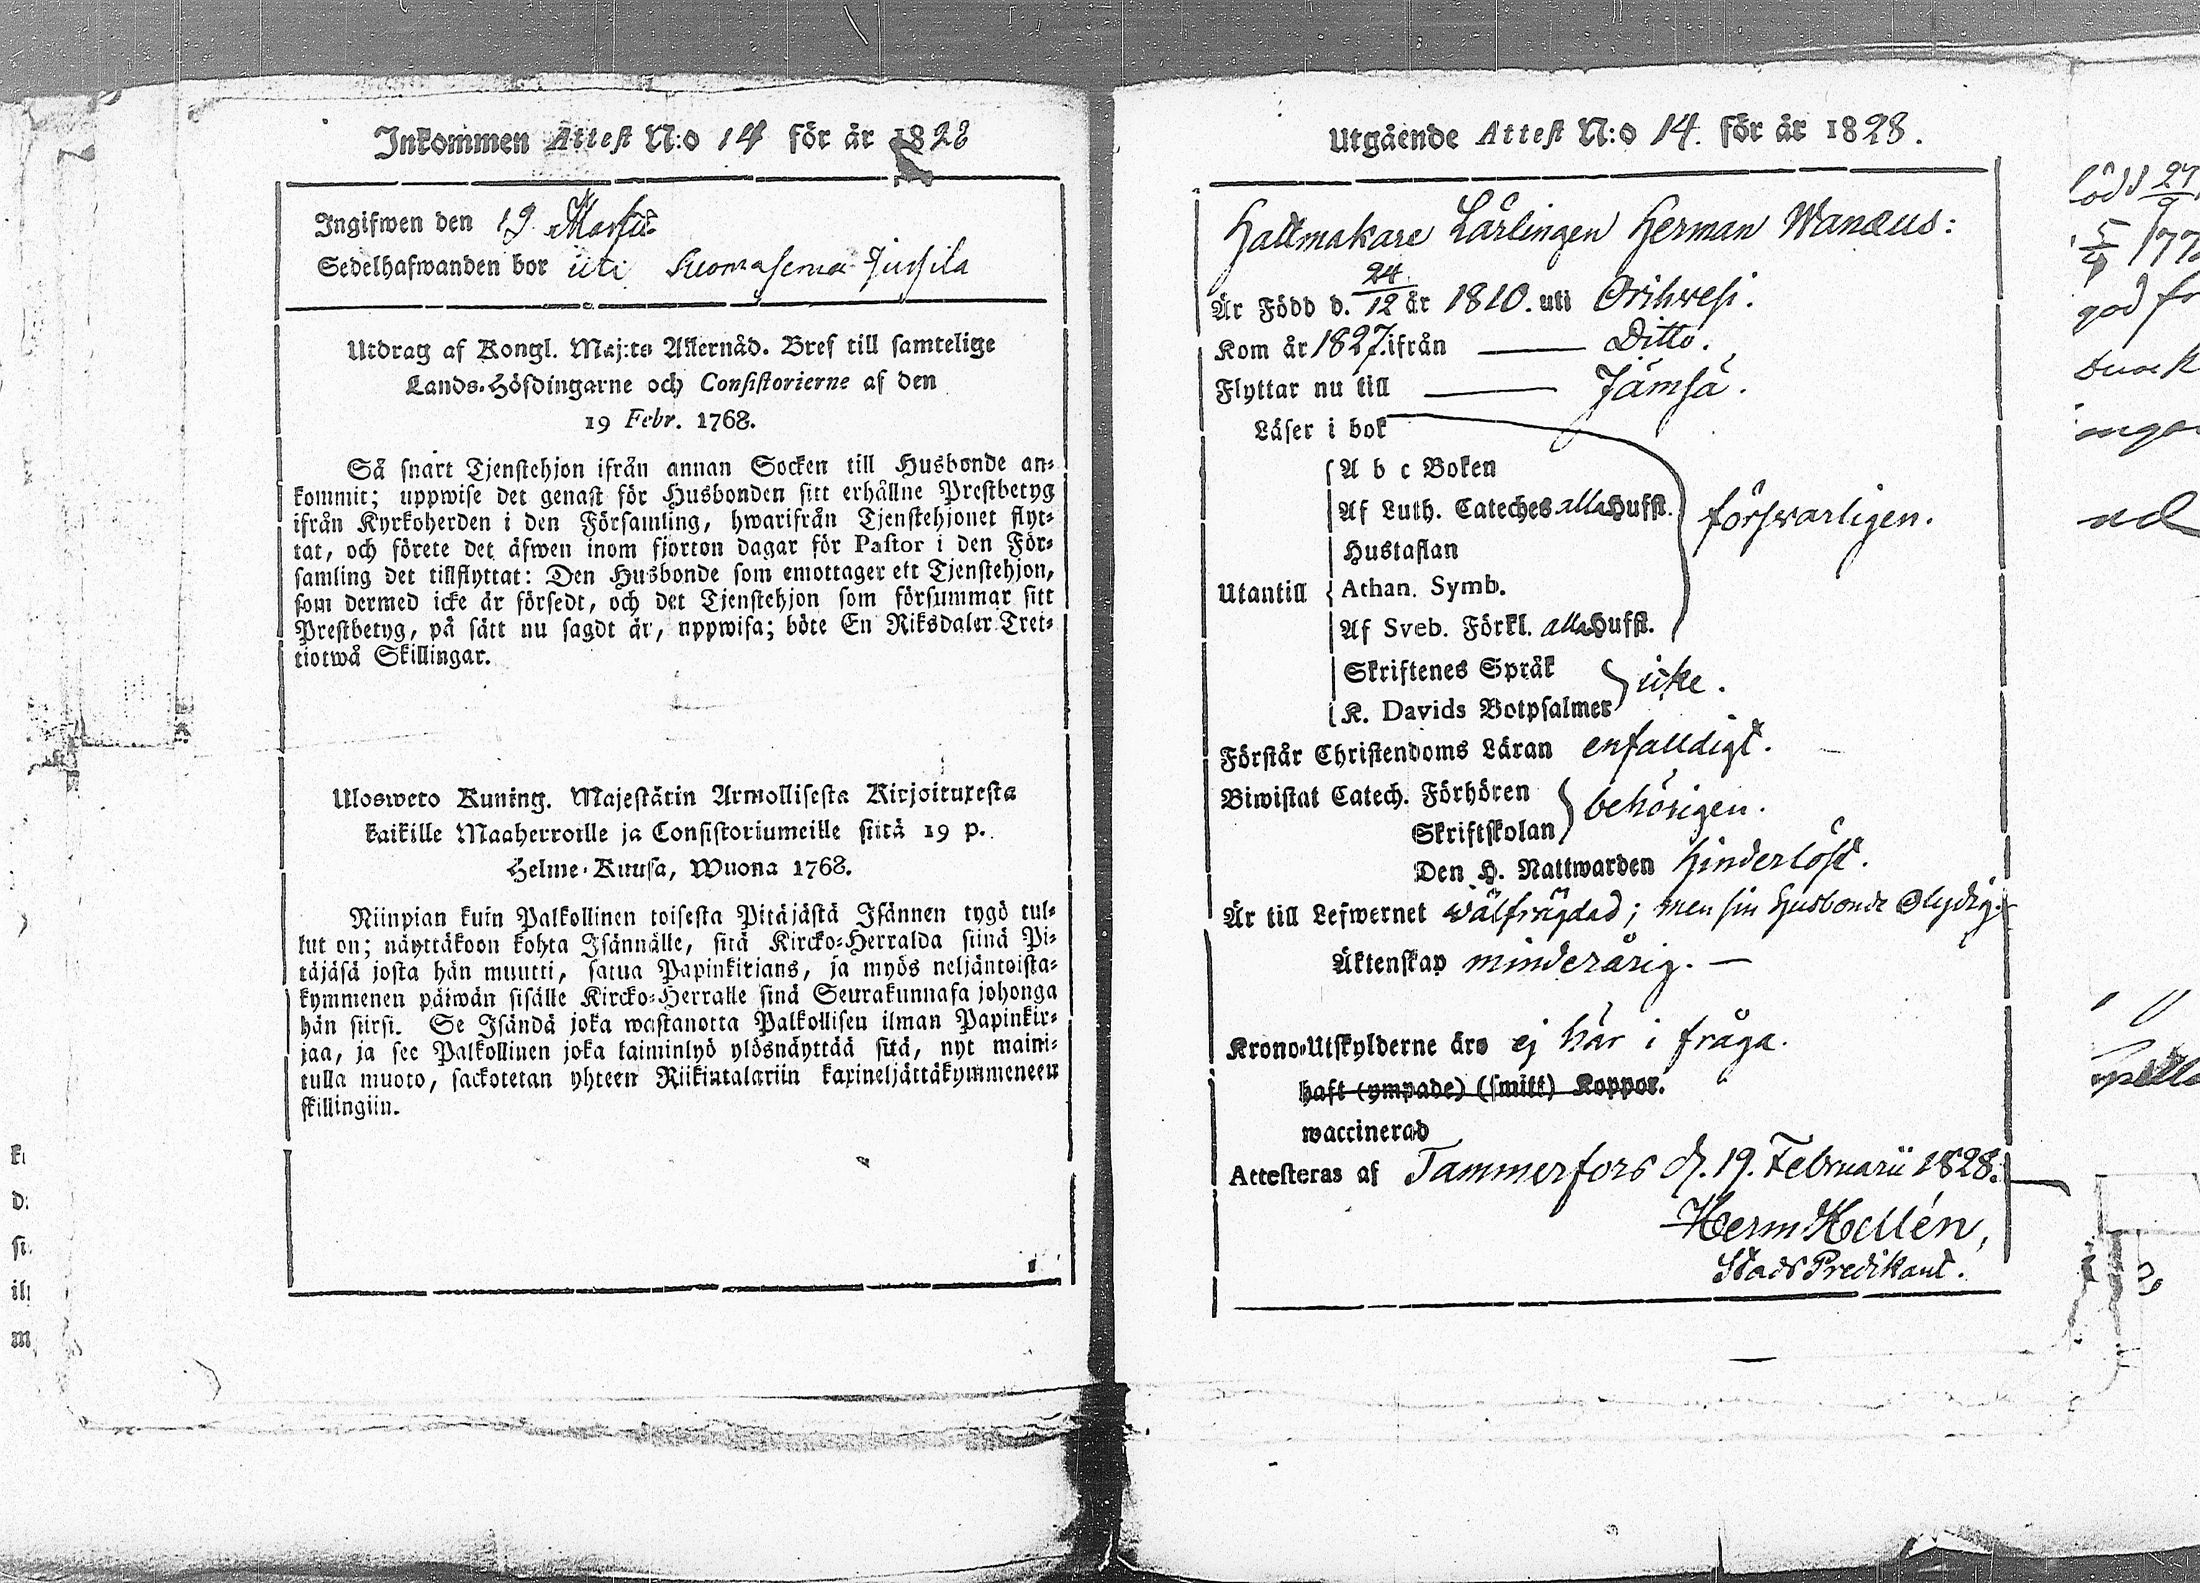 Inkommen Attest N:o 14 för år 1828
Ingifwen den 19 Martii
Sedelhafwanden bor uti Suomasema Jussila
Utdrag af Kongl. Maj:ts Allernåd. Bref till samtelige
Lands-Höfdingarne och Consistorierne af den
19 Febr. 1768.
Så snart Tjenstehjon ifrån annan Socken till Husbonde an-
kommit; uppwise det genast för Husbonden sitt erhållne Prestbetyg
ifrån Kyrkoherden i den Församling, hwarifrån Tjenstehjonet flyt-
tat, och förete det äfwen inom fjorton dagar för Pastor i den För-
samling det tillflyttat: Den Husbonde som emottager ett Tjenstehjon,
som dermed icke är försedt, och det Tjenstehjon som försummar sitt
Prestbetyg, på sätt nu sagdt är, uppwisa; böte En Riksdaler Tret-
tiotwå Skillingar.
Ulosweto Kuning. Majestätin Armollisesta Kirjoituxesta
kaikille Maaherroille ja Consistoriumeille siitä 19 p.
Helme-Kuusa, Wuona 1768.
Niinpian kuin Palkollinen toisesta Pitäjästä Isännen tygö tul-
lut on; näyttäkoon kohta Isännälle, sitä Kircko-Herralda siinä Pi-
täjäsä josta hän muutti, satua Papinkirjans, ja myös neljäntoista-
kymmenen päiwän sisälle Kircko-Herralle sinä Seurakunnasa johonga
hän siirsi. Se Isändä joka wastanotta Palkollisen ilman Papinkir-
jaa, ja see Palkollinen joka laiminlyö ylösnäyttää sitä, nyt maini-
tulla muoto, sackotetan yhteen Riikintalariin kaxineljättäkymmeneen
skillingiin.
Utgående Attest N:o 14. för år 1828.
Hattmakare Lärlingen Herman Wanæus:
Är Född d. 24/12 år 1810. uti Orihvesi.
Kom år 1827. ifrån — Ditto.
Flyttar nu till — Jämsä.
Läser i bok
A b c Boken
Af Luth. Cateches alla Hufst. försvarligen.
Hustaflan
Utantill Athan. Symb.
Af Sveb. Förkl. alla Hufst.
Skriftenes Språk icke.
K. Davids Botpsalmer
Förstår Christendoms Läran enfalldigt.
Biwistat Catech. Förhören behörigen.
Skriftskolan
Den H. Nattwarden hinderlöst.
Är till Lefwernet wälfrägdad; men sin Husbonde Olydig.
Äktenskap minderårig. —
Krono-Utskylderne äro ej här i fråga.
haft (ympade) (smitt) Koppor.
waccinerad
Attesteras af Tammerfors d. 19. Februarii 1828.
Herm Hellén,
Stads Predikant.